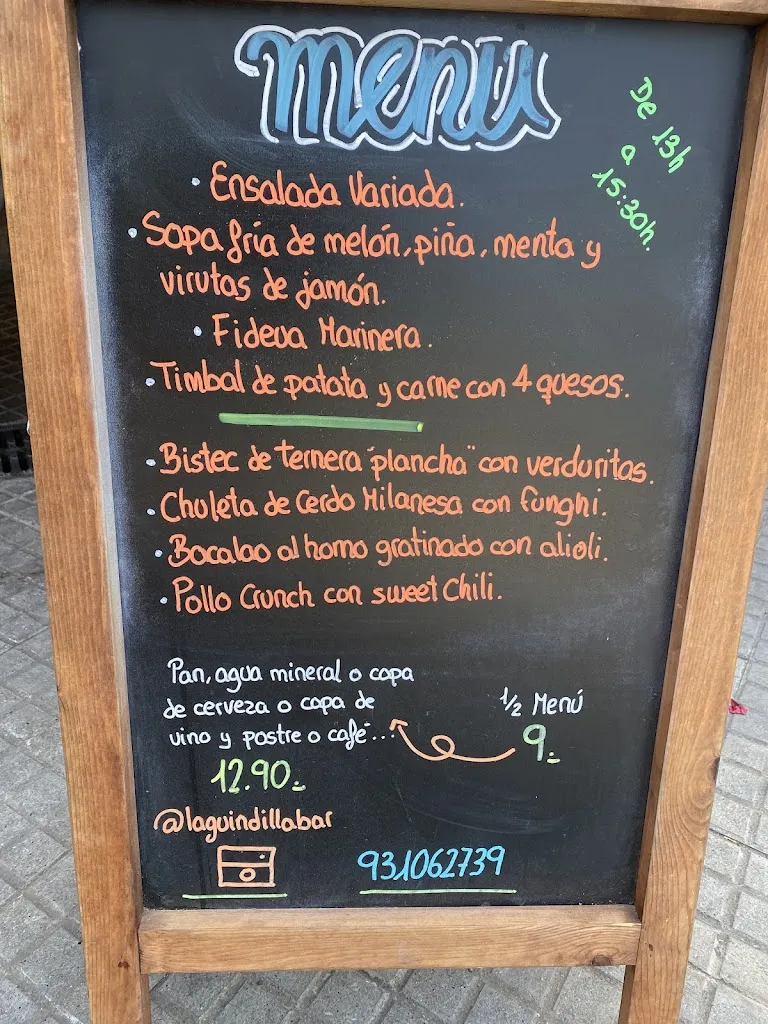 menu
De 13h
a
15:30h.
• Ensalada Variada.
• Sopa fría de melón, piña, menta y
virutas de jamón.
• Fideua Marinera.
• Timbal de patata y carne con 4 quesos.
• Bistec de ternera "plancha" con verduritas.
• Chuleta de Cerdo Milanesa con funghi.
• Bacalao al horno gratinado con alioli.
• Pollo Crunch con sweet Chili.
Pan, agua mineral o copa
de cerveza o copa de
vino y postre o café...
12.90.-
1/2 Menú
9.-
@laguindillabar
931062739